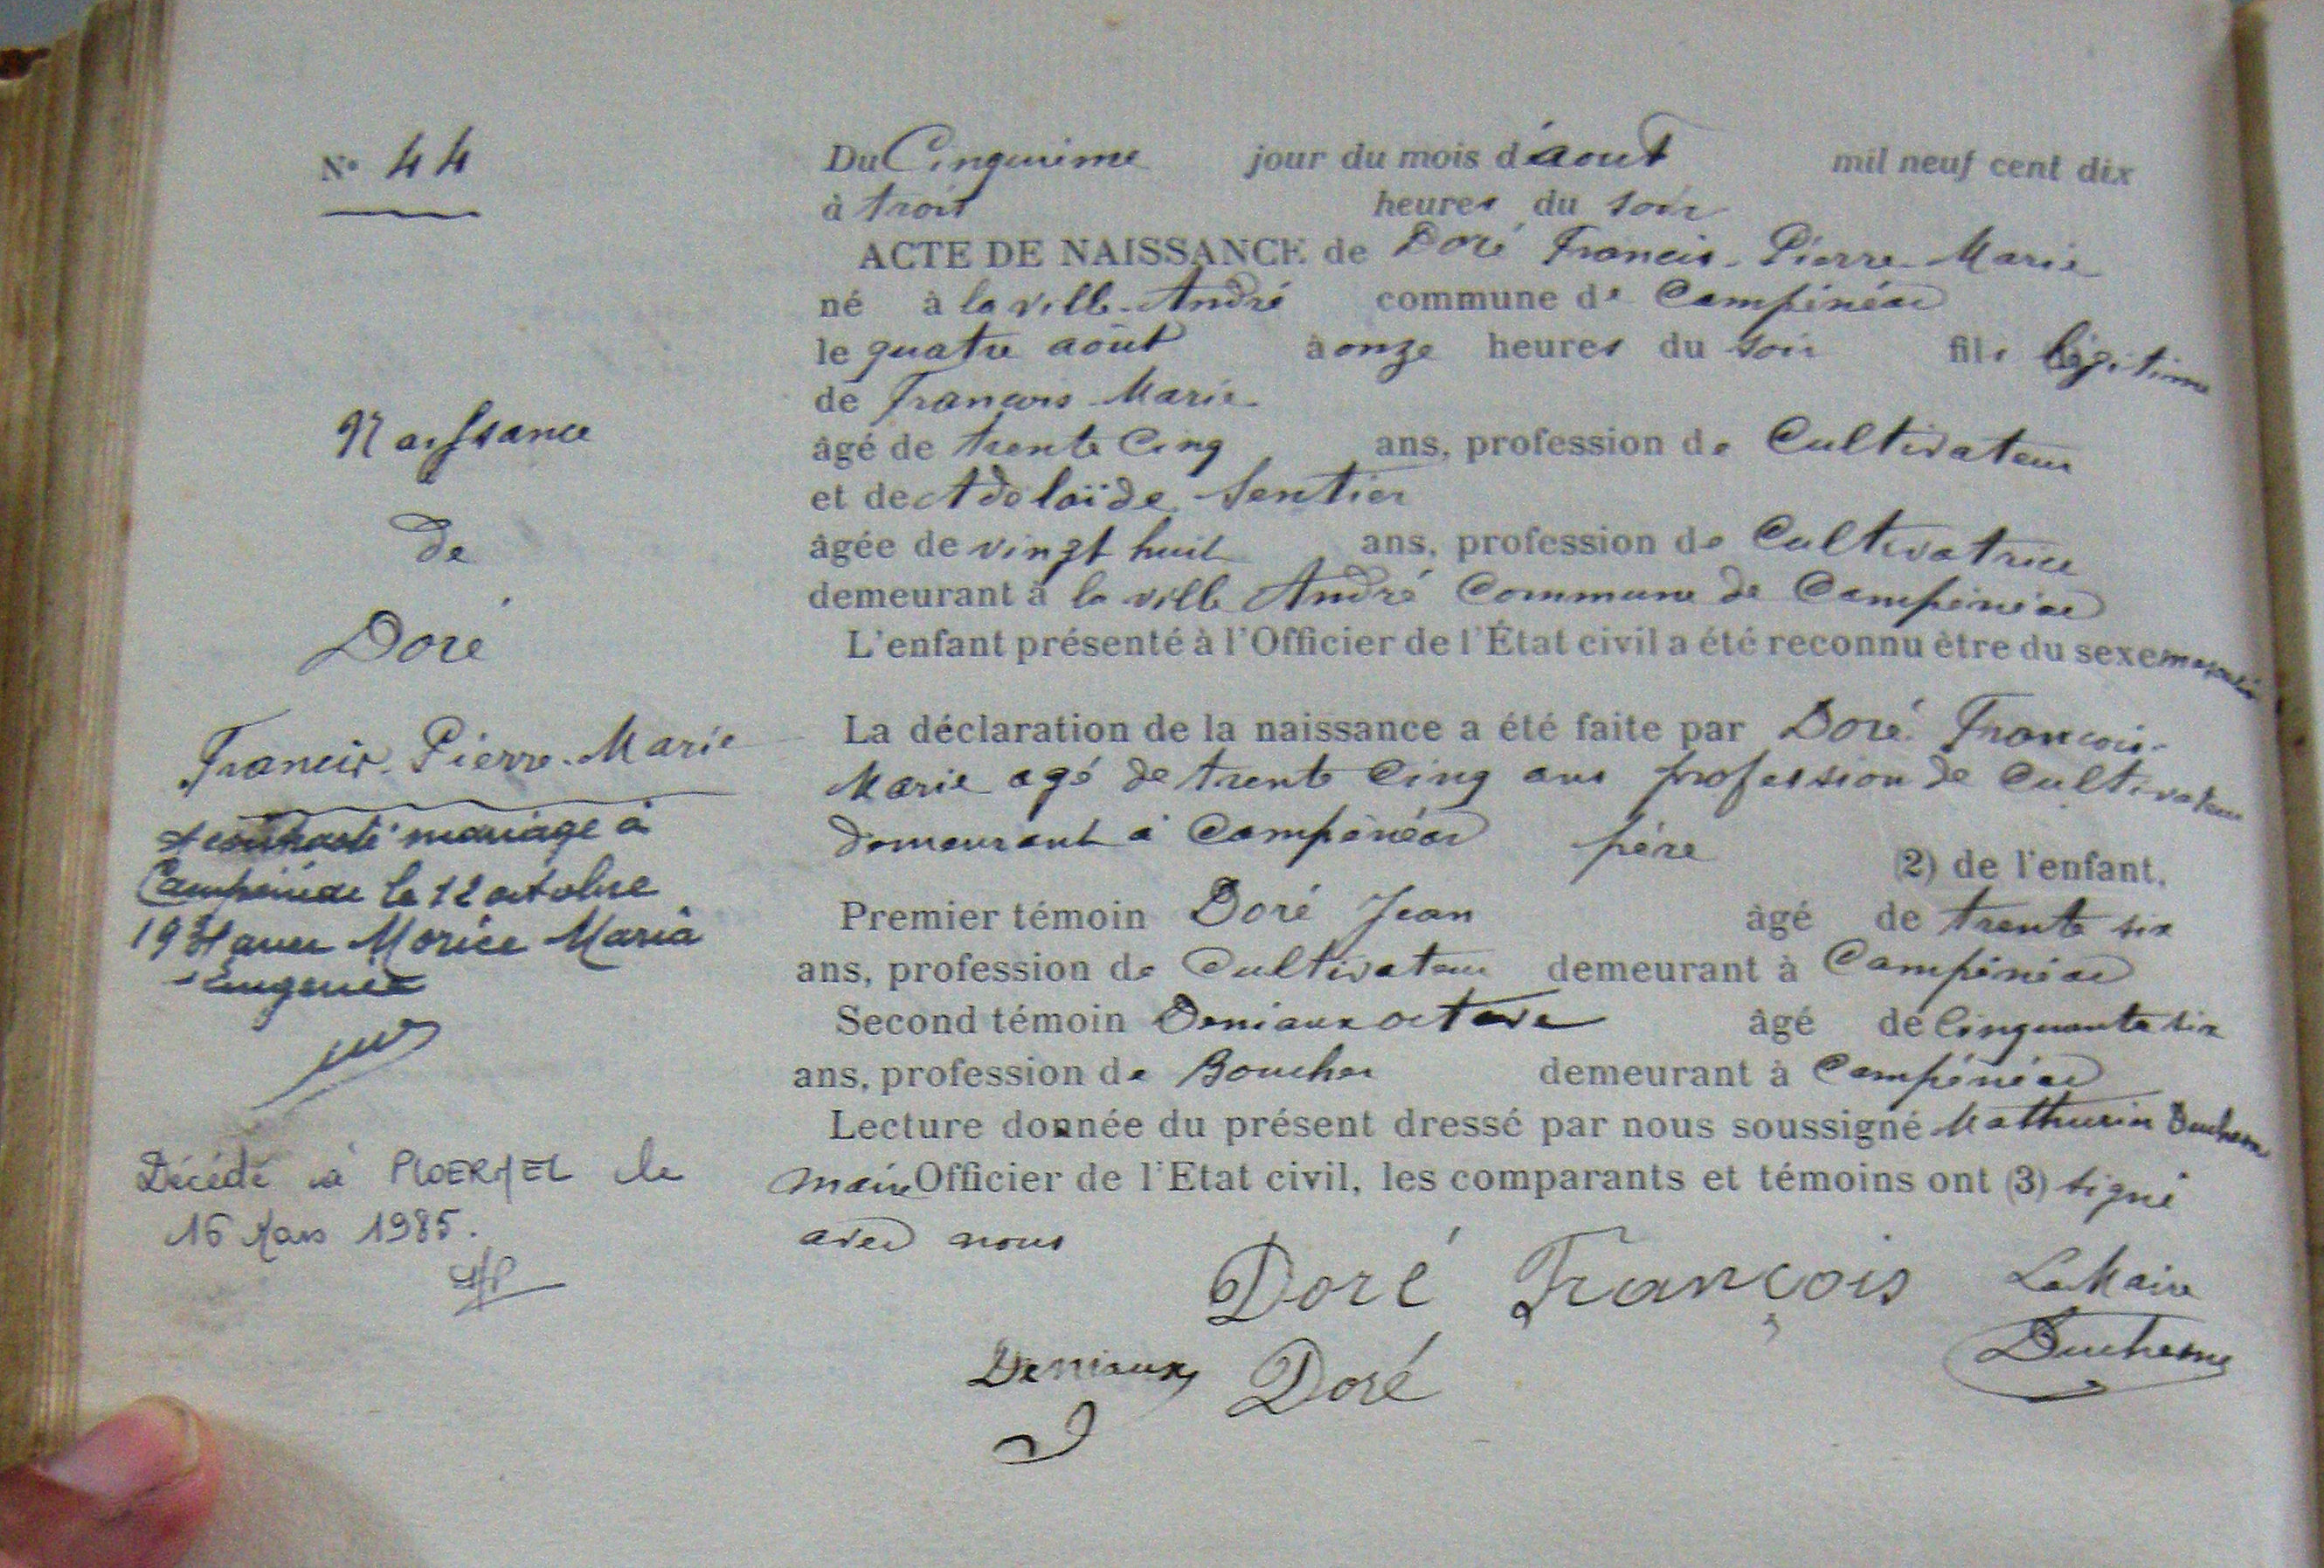 N° 44
Naissance
de
Doré
Francis-Pierre-Marie
a contracté mariage à
Campénéac le 12 octobre
avec Morice Maria
Eugenie
Décédé à PLOERMEL le
16 Mars 1985.
Du Cinquième jour du mois d'aout mil neuf cent dix
à trois heures du soir
ACTE DE NAISSANCE de Doré Francis-Pierre-Marie
né à la ville-André commune de Campénéac
le quatre août à onze heures du soir fils légitime
de François Marie
âgé de trente Cinq ans, profession de Cultivateur
et de Adélaïde Sentier
âgée de vingt huit ans, profession de Cultivatrice
demeurant à la ville André Commune de Campénéac
L'enfant présenté à l'Officier de l'État civil a été reconnu être du sexe masculin
La déclaration de la naissance a été faite par Doré François-
Marie agé de trente Cinq ans profession de Cultivateur
demeurant à Campénéac père (2) de l'enfant.
Premier témoin Doré Jean âgé de trente six
ans, profession de Cultivateur demeurant à Campénéac
Second témoin Deniaux octave âgé de Cinquante six
ans, profession de Boucher demeurant à Campénéac
Lecture donnée du présent dressé par nous soussigné Mathurin Duchesne
maire Officier de l'Etat civil, les comparants et témoins ont (3) signé
avec nous
Doré François Le Maire
Deniaux Doré Duchesne